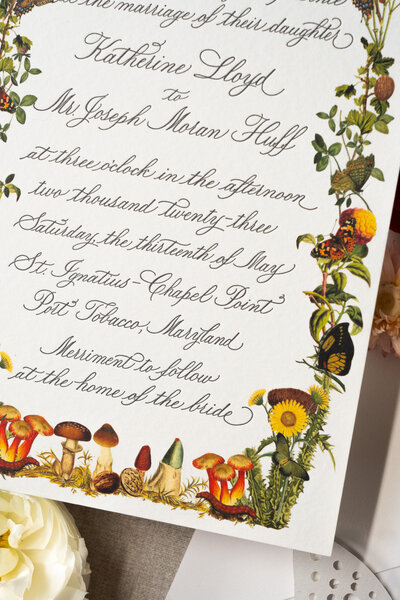 to the marriage of their daughter
Katherine Lloyd
to
Mr. Joseph Moran Huff
at three o'clock in the afternoon
two thousand twenty-three
Saturday, the thirteenth of May
St. Ignatius–Chapel Point
Port Tobacco, Maryland
Merriment to follow
at the home of the bride